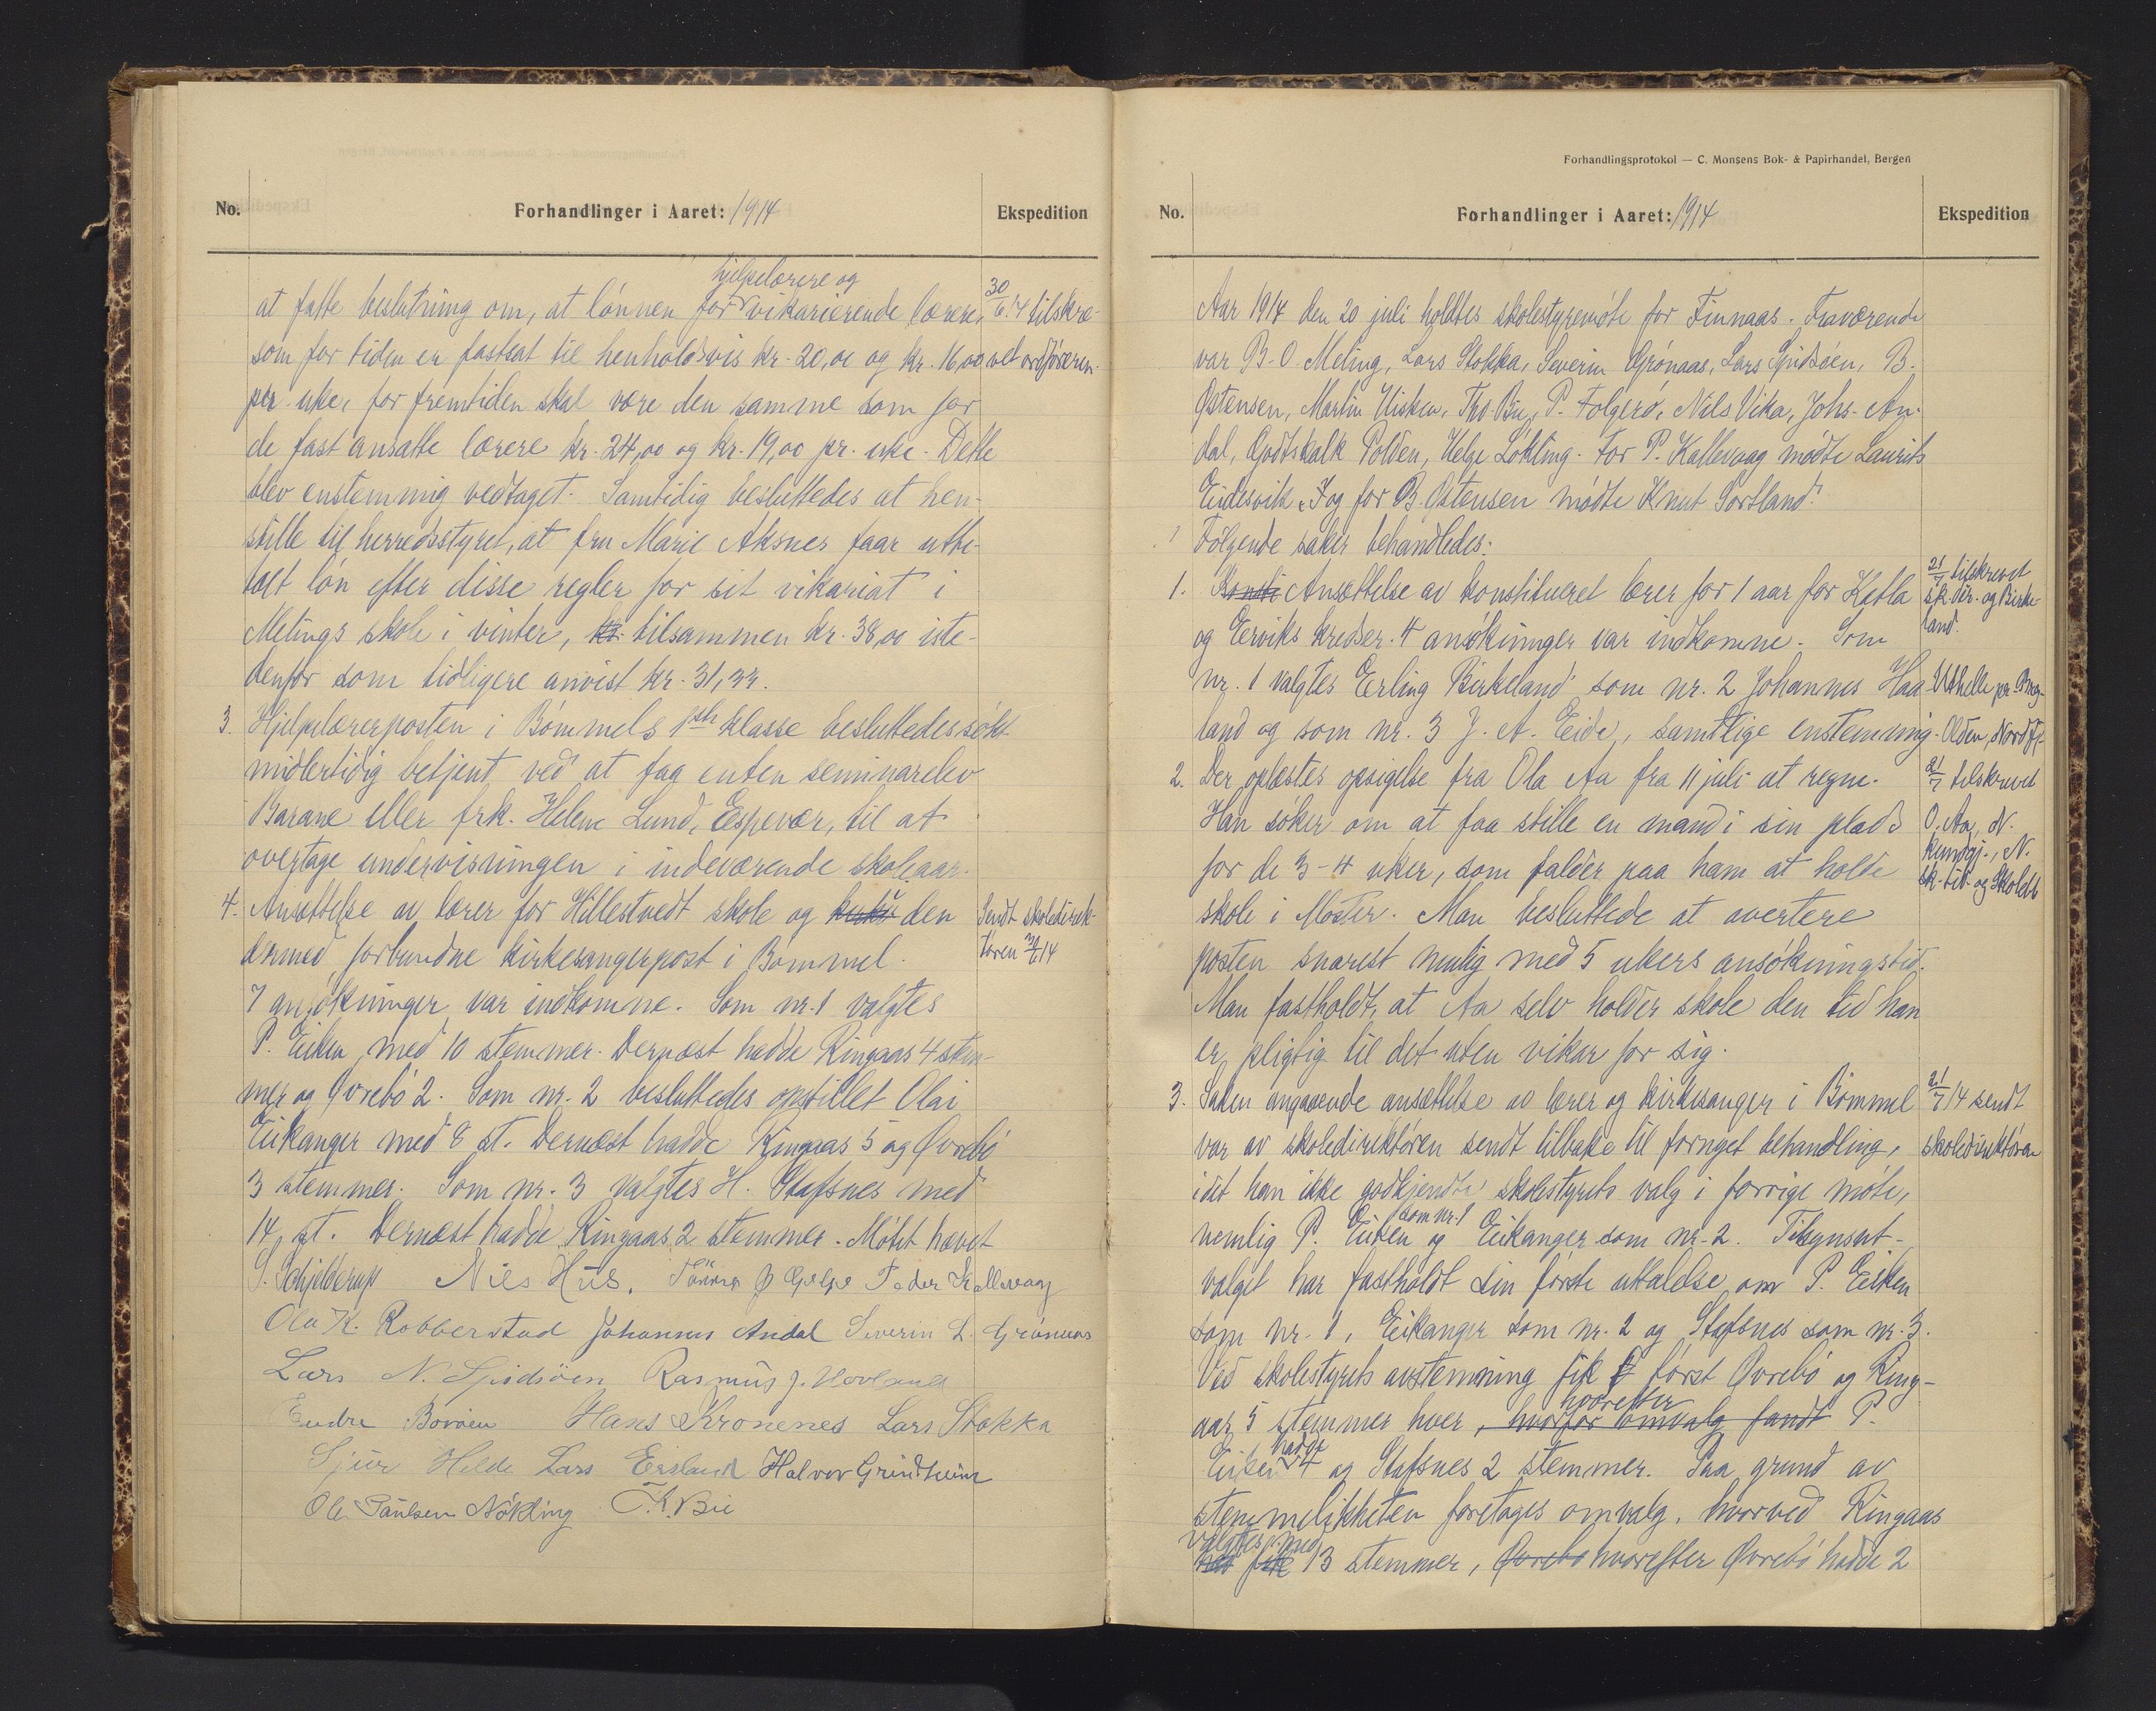 No.
Forhandlinger i Aaret: 1914
Ekspedition
hjelpelærere og
at fatte beslutning om, at lønnen for vikarierende lærere,
som for tiden er fastsat til henholdsvis kr. 20,00 og kr. 16,00
per uke, for fremtiden skal være den samme som for
de fast ansatte lærere kr. 24,00 og kr. 19,00 pr. uke. Dette
blev enstemmig vedtaget. Samtidig besluttedes at hen-
stille til herredsstyret, at fru Marie Aksnes faar utbe-
talt løn efter disse regler for sit vikariat i
Melings skole i vinter, kr. tilsammen kr. 38,00 iste-
denfor som tidligere anvist kr. 31,33.
30/6.14 tilskre-
vet ordføreren.
3. Hjelpelærerposten i Bømmels 1ste klasse besluttedes søkt
midlertidig betjent ved at faa enten seminarelev
Barane eller frk. Helene Lund, Espevær, til at
overtage undervisningen i indeværende skoleaar.
4. Ansættelse av lærer for Hillestvedt skole og den
dermed forbundne kirkesangerpost i Bømmel.
7 ansøkninger var indkomne. Som nr. 1 valgtes
P. Eiken med 10 stemmer. Dernæst hadde Ringaas 4 stem-
mer og Øvrebø 2. Som nr. 2 besluttedes opstillet Olai
Eikanger med 8 st. Dernæst hadde Ringaas 5 og Øvrebø
3 stemmer. Som nr. 3 valgtes H. Stafsnes med
14 st. Dernæst hadde Ringaas 2 stemmer. Møtet hævet
Sendt skoledirek-
tøren 30/6 14
S. Schjelderup Nils Hus. Tønnes Ø Gjelpe Peder Kallevaag
Ola K. Robberstad Johannes Andal Severin L. Grønaas
Lars N. Spidsøen Rasmus J. Hovland
Endre Bovøen Hans Kronenes Lars Stokka
Sjur Helde Lars Eisland Halvor Grindheim
Ole Paulsen Nökling Th. Bie
Forhandlingsprotokol — C. Monsens Bok- & Papirhandel, Bergen
No.
Forhandlinger i Aaret: 1914
Ekspedition
Aar 1914 den 20 juli holdtes skolestyremøte for Finnaas. Fraværende
var B. O. Meling, Lars Stokka, Severin Grønaas, Lars Spidsøen, B.
Østensen, Martin Uisken, Tho. Bie, P. Folgerø, Nils Vika, Johs. An-
dal, Godtskalk Polden, Helge Løkling. For P. Kallevaag mødte Laurits
Eidesvik og for B. Østensen mødte Knut Sortland.
Følgende saker behandledes:
1. Konsti Ansættelse av konstitueret lærer for 1 aar for Katla
og Eerviks kredser. 4 ansøkninger var indkomne. Som
nr. 1 valgtes Erling Birkeland som nr. 2 Johannes Haa-
land og som nr. 3 J. A. Eide, samtlige enstemmig.
21/7 tilskrevet
sk.dir. og Birke-
land.
Olden, Nordfj.
2. Der oplæstes opsigelse fra Ola Aa fra 11 juli at regne.
Han søker om at faa stille en mand i sin plads
for de 3-4 uker, som falder paa ham at holde
skole i Moster. Man besluttede at avertere
posten snarest mulig med 5 ukers ansøkningstid.
Man fastholdt, at Aa selv holder skole den tid han
er pligtig til det uten vikar for sig.
21/7 tilskrevet
O. Aa, N.
kundgj., N.
sk.-tid. og Skolebl
3. Saken angaaende ansættelse av lærer og kirkesanger i Bømmel
var av skoledirektøren sendt tilbake til fornyet behandling,
idet han ikke godkjendte skolestyrets valg i forrige møte,
som nr. 1
nemlig P. Eiken og Eikanger som nr. 2. Tilsynsut-
valget har fastholdt sin første uttalelse om P. Eiken
som nr. 1, Eikanger som nr. 2 og Stafsnes som nr. 3.
Ved skolestyrets avstemning fik først Øvrebø og Ring-
hvorefter
aas 5 stemmer hver, hvorfor omvalg fandt P.
hadde
Eiken 4 og Stafsnes 2 stemmer. Paa grund av
stemmelikheten foretages omvalg, hvorved Ringaas
valgtes med
fik 13 stemmer, Øvrebø hvorefter Øvrebø hadde 2
21/7 14 sendt
skoledirektøren